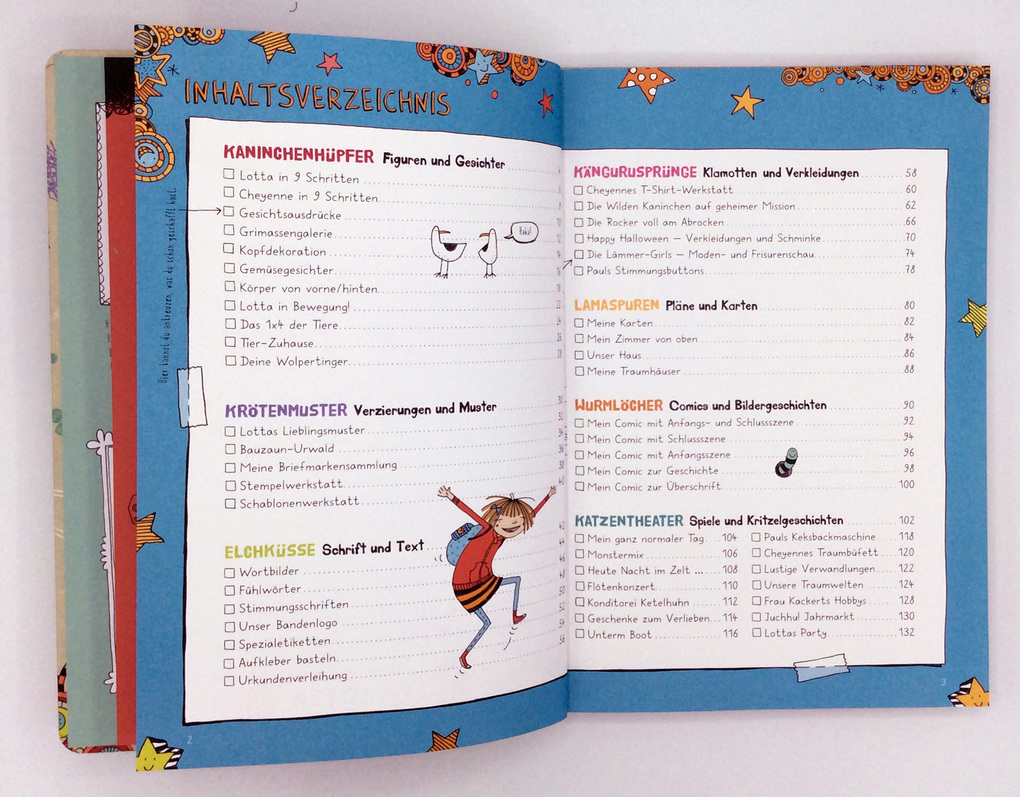 INHALTSVERZEICHNIS
Hier kannst du ankreuzen, was du schon geschafft hast.
KANINCHENHÜPFER Figuren und Gesichter
Lotta in 9 Schritten
Cheyenne in 9 Schritten
Gesichtsausdrücke
Grimassengalerie
Kopfdekoration
Gemüsegesichter
Körper von vorne/hinten
Lotta in Bewegung!
Das 1x4 der Tiere
Tier-Zuhause
Deine Wolpertinger
KRÖTENMUSTER Verzierungen und Muster
Lottas Lieblingsmuster
Bauzaun-Urwald
Meine Briefmarkensammlung
Stempelwerkstatt
Schablonenwerkstatt
ELCHKÜSSE Schrift und Text
Wortbilder
Fühlwörter
Stimmungsschriften
Unser Bandenlogo
Spezialetiketten
Aufkleber basteln
Urkundenverleihung
2
KÄNGURUSPRÜNGE Klamotten und Verkleidungen 58
Cheyennes T-Shirt-Werkstatt 60
Die Wilden Kaninchen auf geheimer Mission 62
Die Rocker voll am Abrocken 66
Happy Halloween – Verkleidungen und Schminke 70
Die Lämmer-Girls – Moden- und Frisurenschau 74
Pauls Stimmungsbuttons 78
LAMASPUREN Pläne und Karten 80
Meine Karten 82
Mein Zimmer von oben 84
Unser Haus 86
Meine Traumhäuser 88
WURMLÖCHER Comics und Bildergeschichten 90
Mein Comic mit Anfangs- und Schlussszene 92
Mein Comic mit Schlussszene 94
Mein Comic mit Anfangsszene 96
Mein Comic zur Geschichte 98
Mein Comic zur Überschrift 100
KATZENTHEATER Spiele und Kritzelgeschichten 102
Mein ganz normaler Tag 104
Monstermix 106
Heute Nacht im Zelt ... 108
Flötenkonzert 110
Konditorei Ketelhuhn 112
Geschenke zum Verlieben 114
Unterm Boot 116
Pauls Keksbackmaschine 118
Cheyennes Traumbüfett 120
Lustige Verwandlungen 122
Unsere Traumwelten 124
Frau Kackerts Hobbys 128
Juchhu! Jahrmarkt 130
Lottas Party 132
3